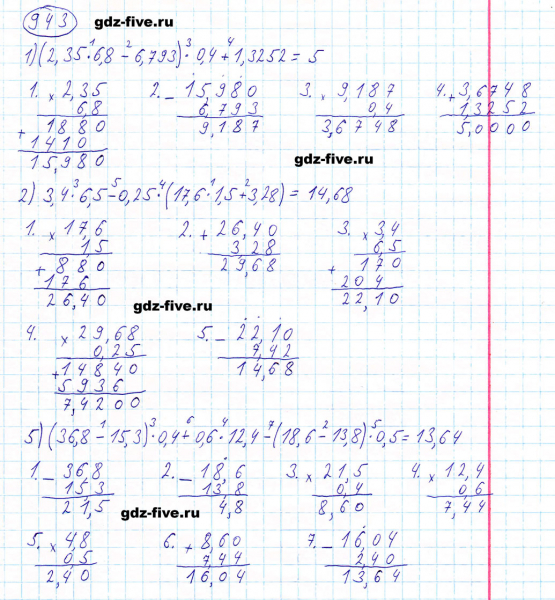 943 gdz-five.ru
1) (2,35·6,8 - 6,793)·0,4 + 1,3252 = 5
1. × 2,35 2. - 15,980 3. × 9,187 4. + 3,6748
6,8 6,793 0,4 1,3252
1880 9,187 3,6748 5,0000
+ 1410
15,980
gdz-five.ru
2) 3,4·6,5 - 0,25·(17,6·1,5 + 3,28) = 14,68
1. × 17,6 2. + 26,40 3. × 3,4
1,5 3 28 6,5
+ 880 29,68 + 170
176 204
26,40 22,10
gdz-five.ru
4. × 29,68 5. - 22,10
0,25 7,42
+ 14840 14,68
5936
7,4200
5) (36,8 - 15,3)·0,4 + 0,6·12,4 - (18,6 - 13,8)·0,5 = 13,64
1. - 36,8 2. - 18,6 3. × 21,5 4. × 12,4
15,3 13,8 0,4 0,6
21,5 4,8 8,60 7,44
gdz-five.ru
5. × 4,8 6. + 8,60 7. - 16,04
0,5 7,44 2,40
2,40 16,04 13,64